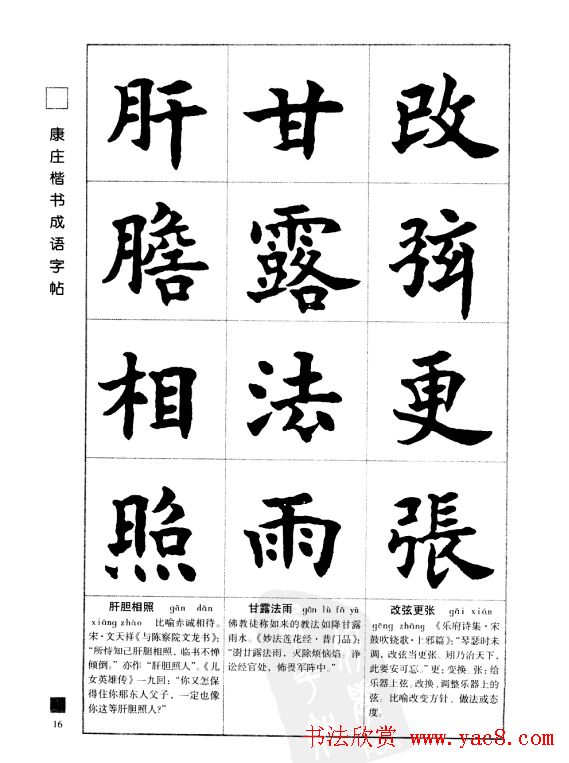 康庄楷书成语字帖
改弦更張
甘露法雨
肝膽相照
改弦更张 gǎi xián
gēng zhāng 《乐府诗集·宋
鼓吹铙歌·上邪篇》:“琴瑟时未
调,改弦当更张。矧乃治天下,
此要安可忘。”更:变换。张:给
乐器上弦。改换、调整乐器上的
弦。比喻改变方针、做法或态
度。
甘露法雨 gān lù fǎ yǔ
佛教徒称如来的教法如降甘露
雨水。《妙法莲花经·普门品》:
“澍甘露法雨,灭除烦恼焰。诤
讼经官处,怖畏军阵中。”
肝胆相照 gān dǎn
xiāng zhào 比喻赤诚相待。
宋·文天祥《与陈察院文龙书》:
“所恃知己肝胆相照,临书不惮
倾倒。”亦作“肝胆照人”。《儿
女英雄传》一九回:“你又怎保
得住你那东人父子,一定也像
你这等肝胆照人?”
16
书法欣赏 www.yac8.com